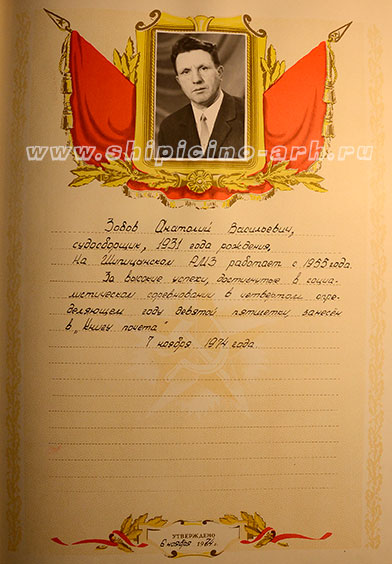 www.shipicino-arh.ru
Зобов Анатолий Васильевич,
судосборщик, 1931 года рождения,
На Шипицинском РМЗ работает с 1955 года.
За высокие успехи, достигнутые в социа-
листическом соревновании в четвертом опре-
деляющем году девятой пятилетки, занесён
в „Книгу почета"
7 ноября 1974 года.
УТВЕРЖДЕНО
6 ноября 1974 г.